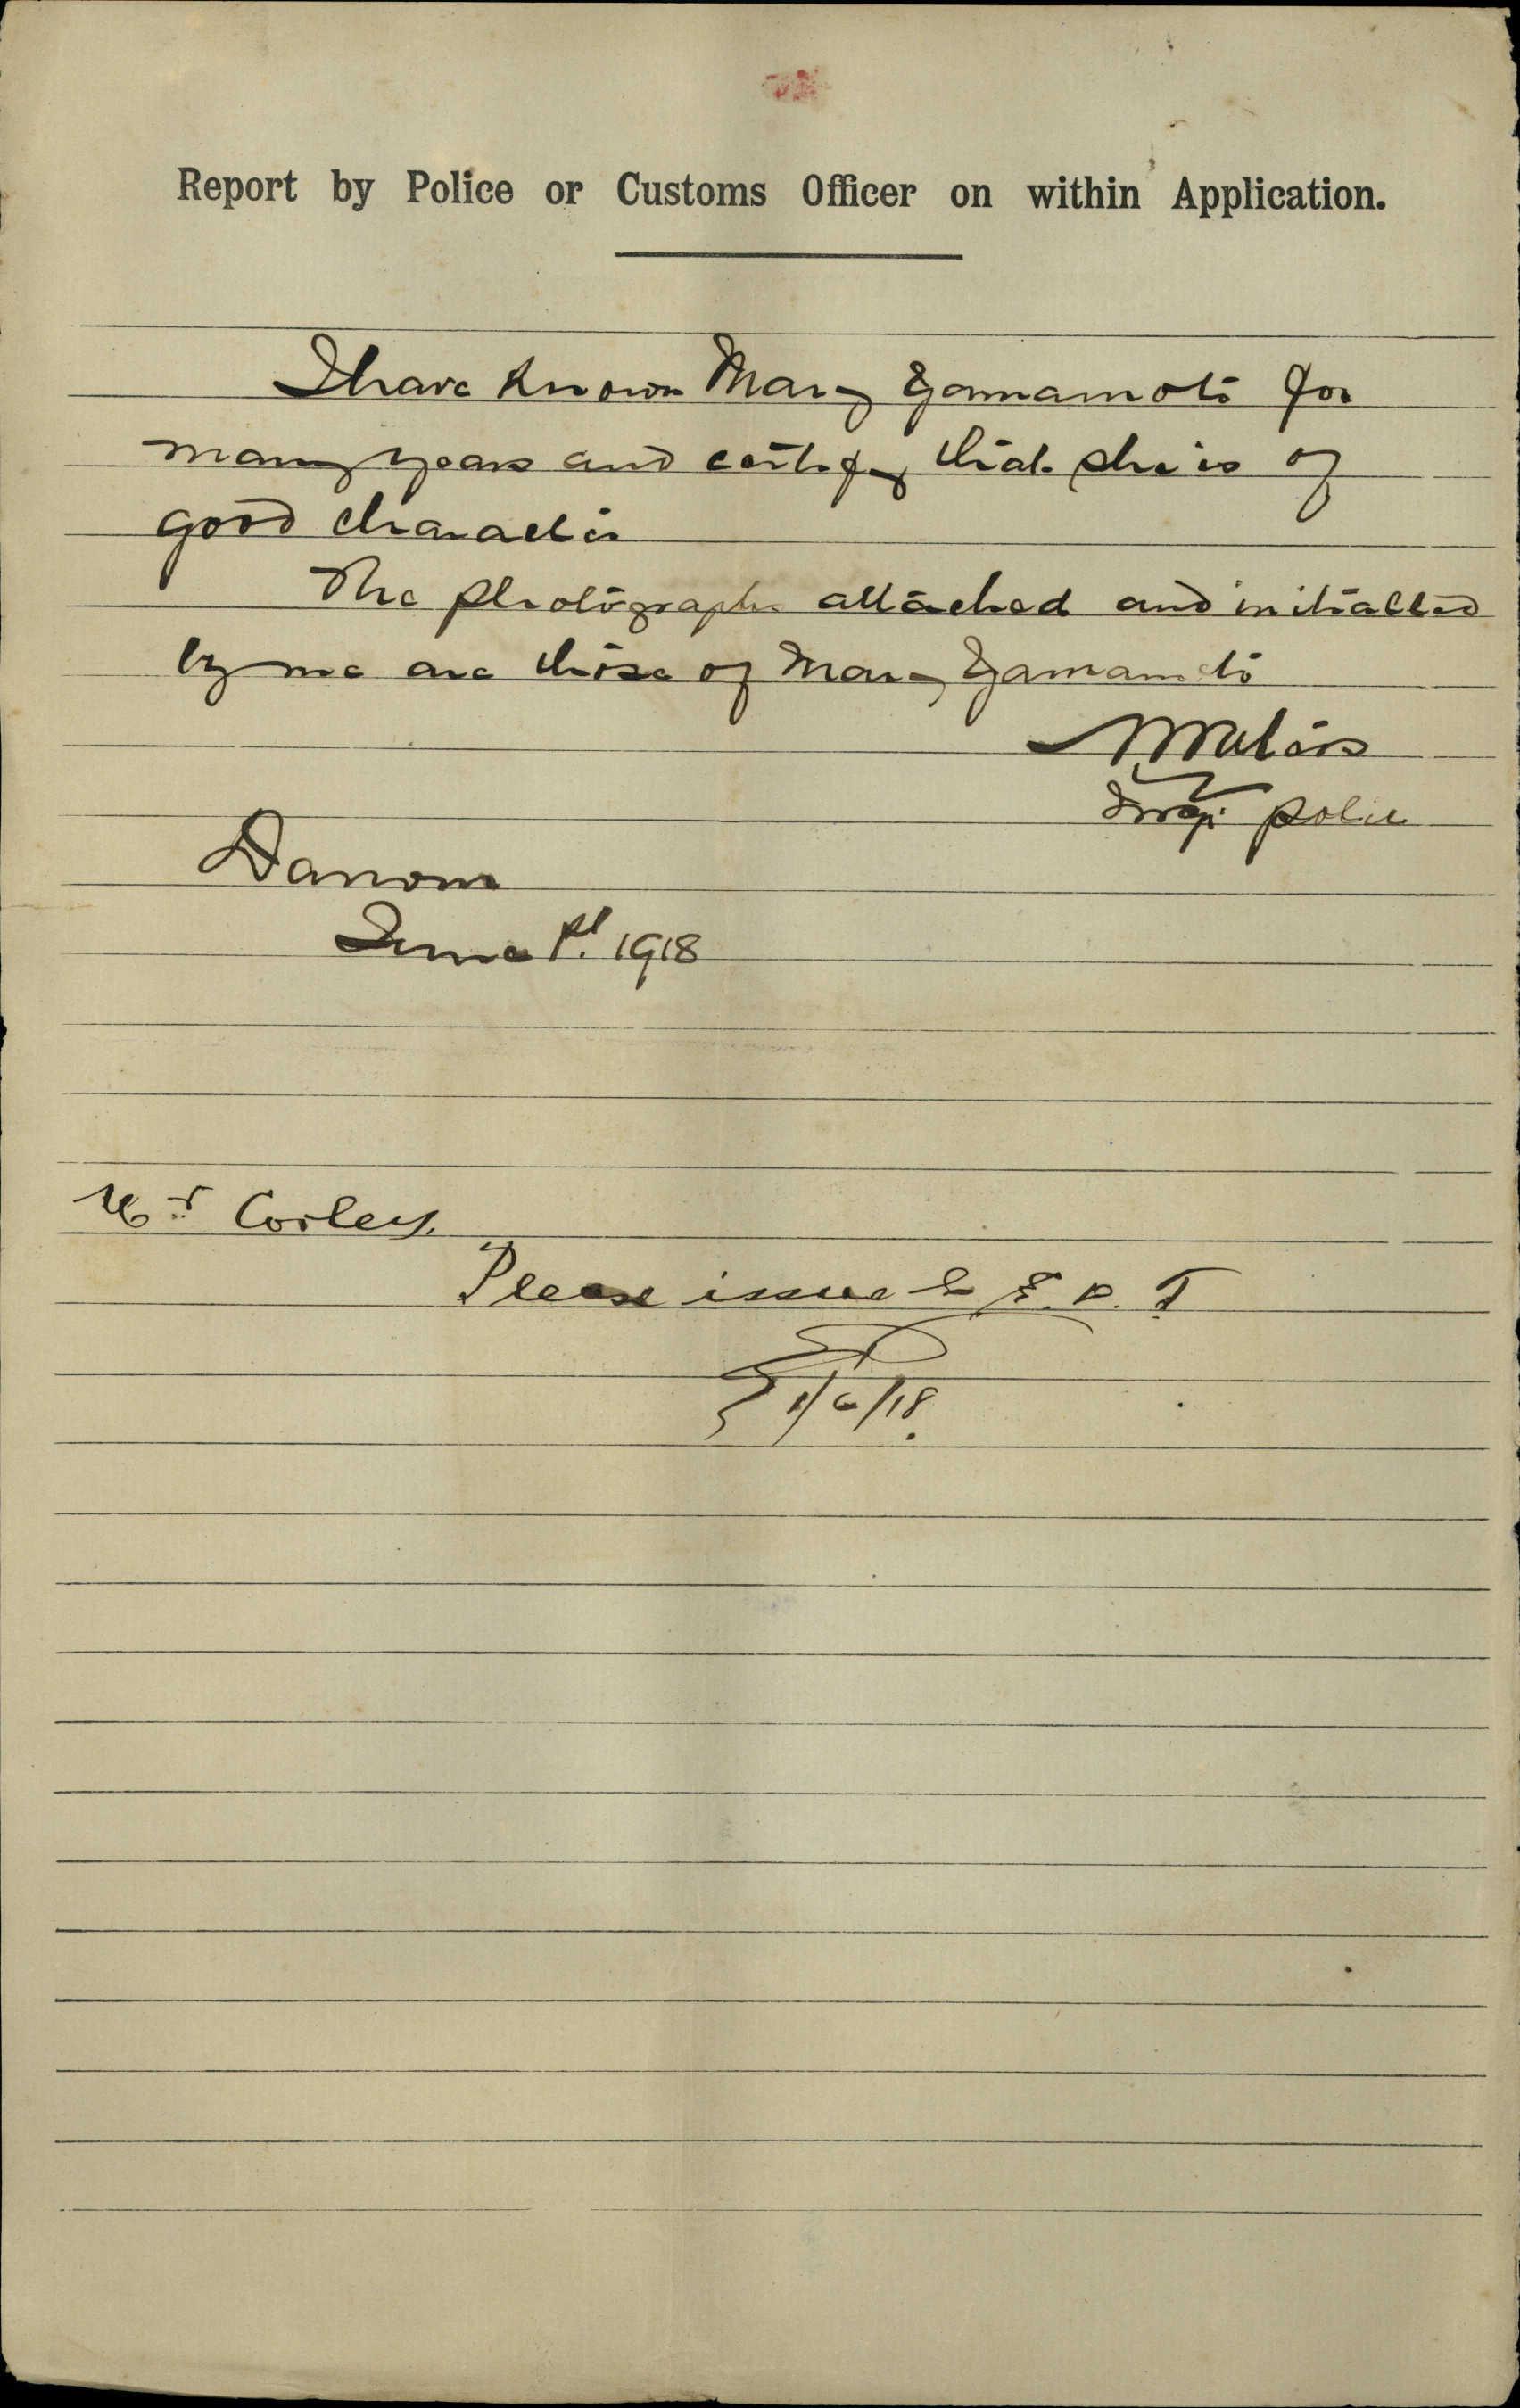 Report by Police or Customs Officer on within Application.
I have known Mary Yamamoto for
many years and certify that she is of
good character
The photographs attached and initialled
by me are those of Mary Yamamoto
NWaters
Insp: Police
Darwin
June 1st. 1918
Mr Corley.
Please issue C.E.D.T
1/6/18.